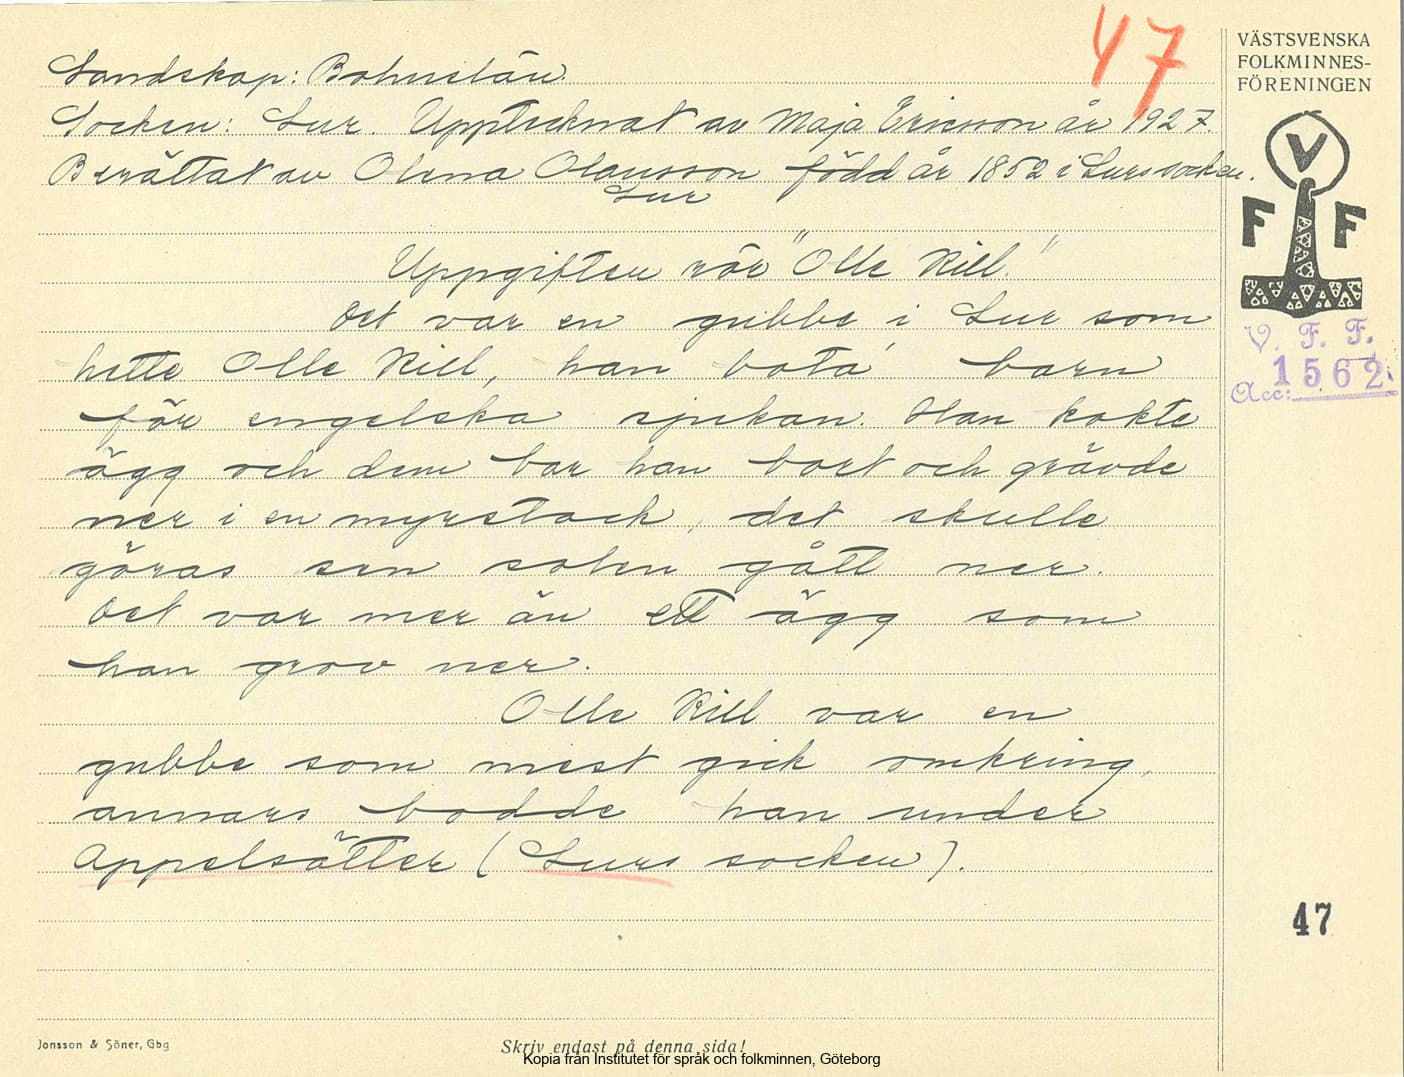 47
VÄSTSVENSKA
FOLKMINNES-
FÖRENINGEN
Landskap: Bohuslän.
Socken: Lur. Upptecknat av Maja Ericson år 1927.
Berättat av Olena Olausson född år 1852 i Lurs socken.
Lur
V
F F
Uppgiften rör "Olle Kill."
Det var en gubbe i Lur som
hette Olle Kill, han bota' barn
för engelska sjukan. Han kokte
ägg och dem bar han bort och grävde
ner i en myrstack, det skulle
göras sen solen gått ner.
Det var mer än ett ägg som
han grov ner.
Olle Kill var en
gubbe som mest gick omkring,
annars bodde han under
Appelsätter (Lurs socken).
V. F. F.
Acc: 1562
47
Jonsson & Söner, Gbg
Skriv endast på denna sida!
Kopia från Institutet för språk och folkminnen, Göteborg